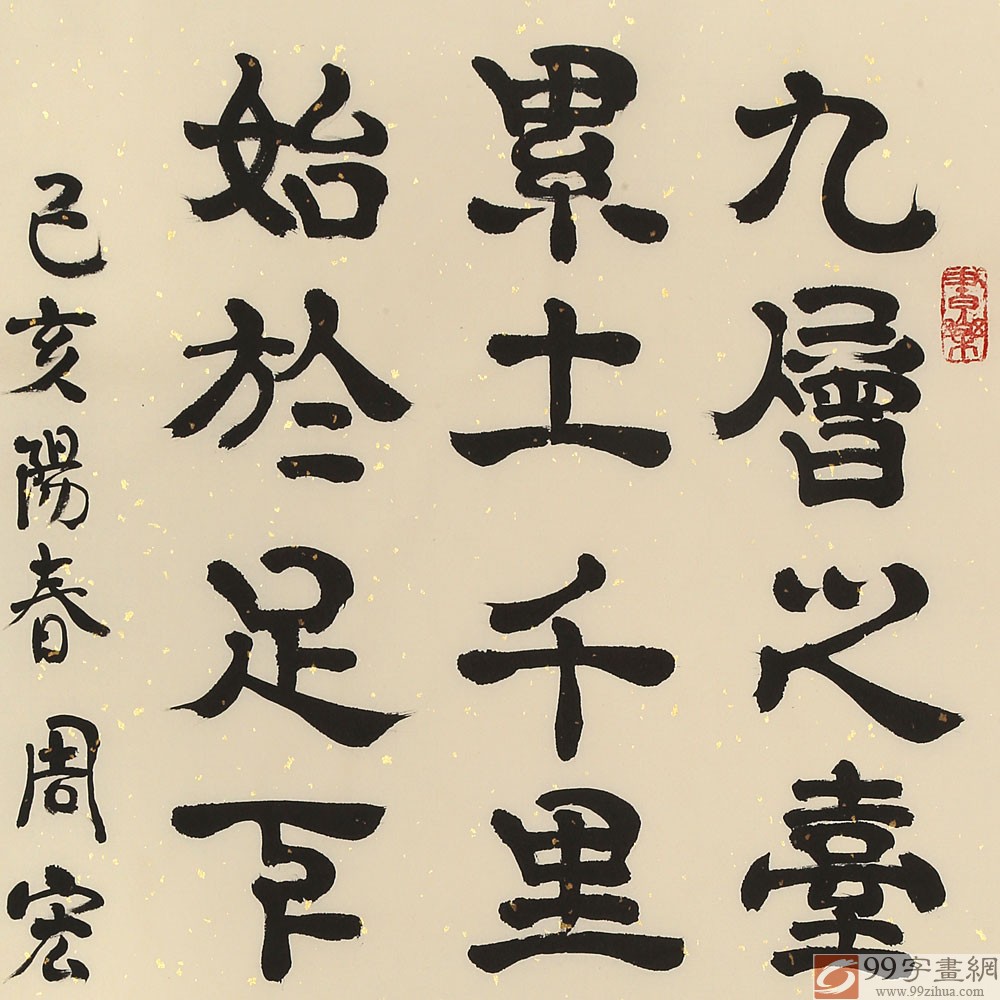 九層之臺
累土千里
始於足下
己亥陽春周宏
99字畫網
www.99zihua.com